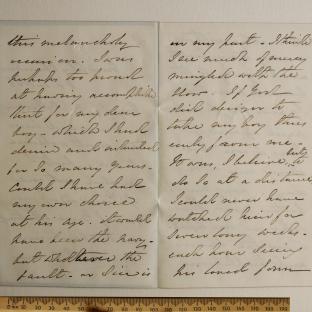 this melancholy
occasion. I was
perhaps too proud
at having accomplished
that for my dear
boy - which I had
desired and intended
for so many years.
Could I have had
my own choice
at his age. It would
have been the navy.
but whatever the
fault - or sin is
on my part - I think
I see much of mercy
mingled with the
blow. If God
did design to
take my boy thus
early from me.
It was, I believe, to
do so at a distance
I could never have
watched him for
seven long weeks.
each hour seeing
his loved form